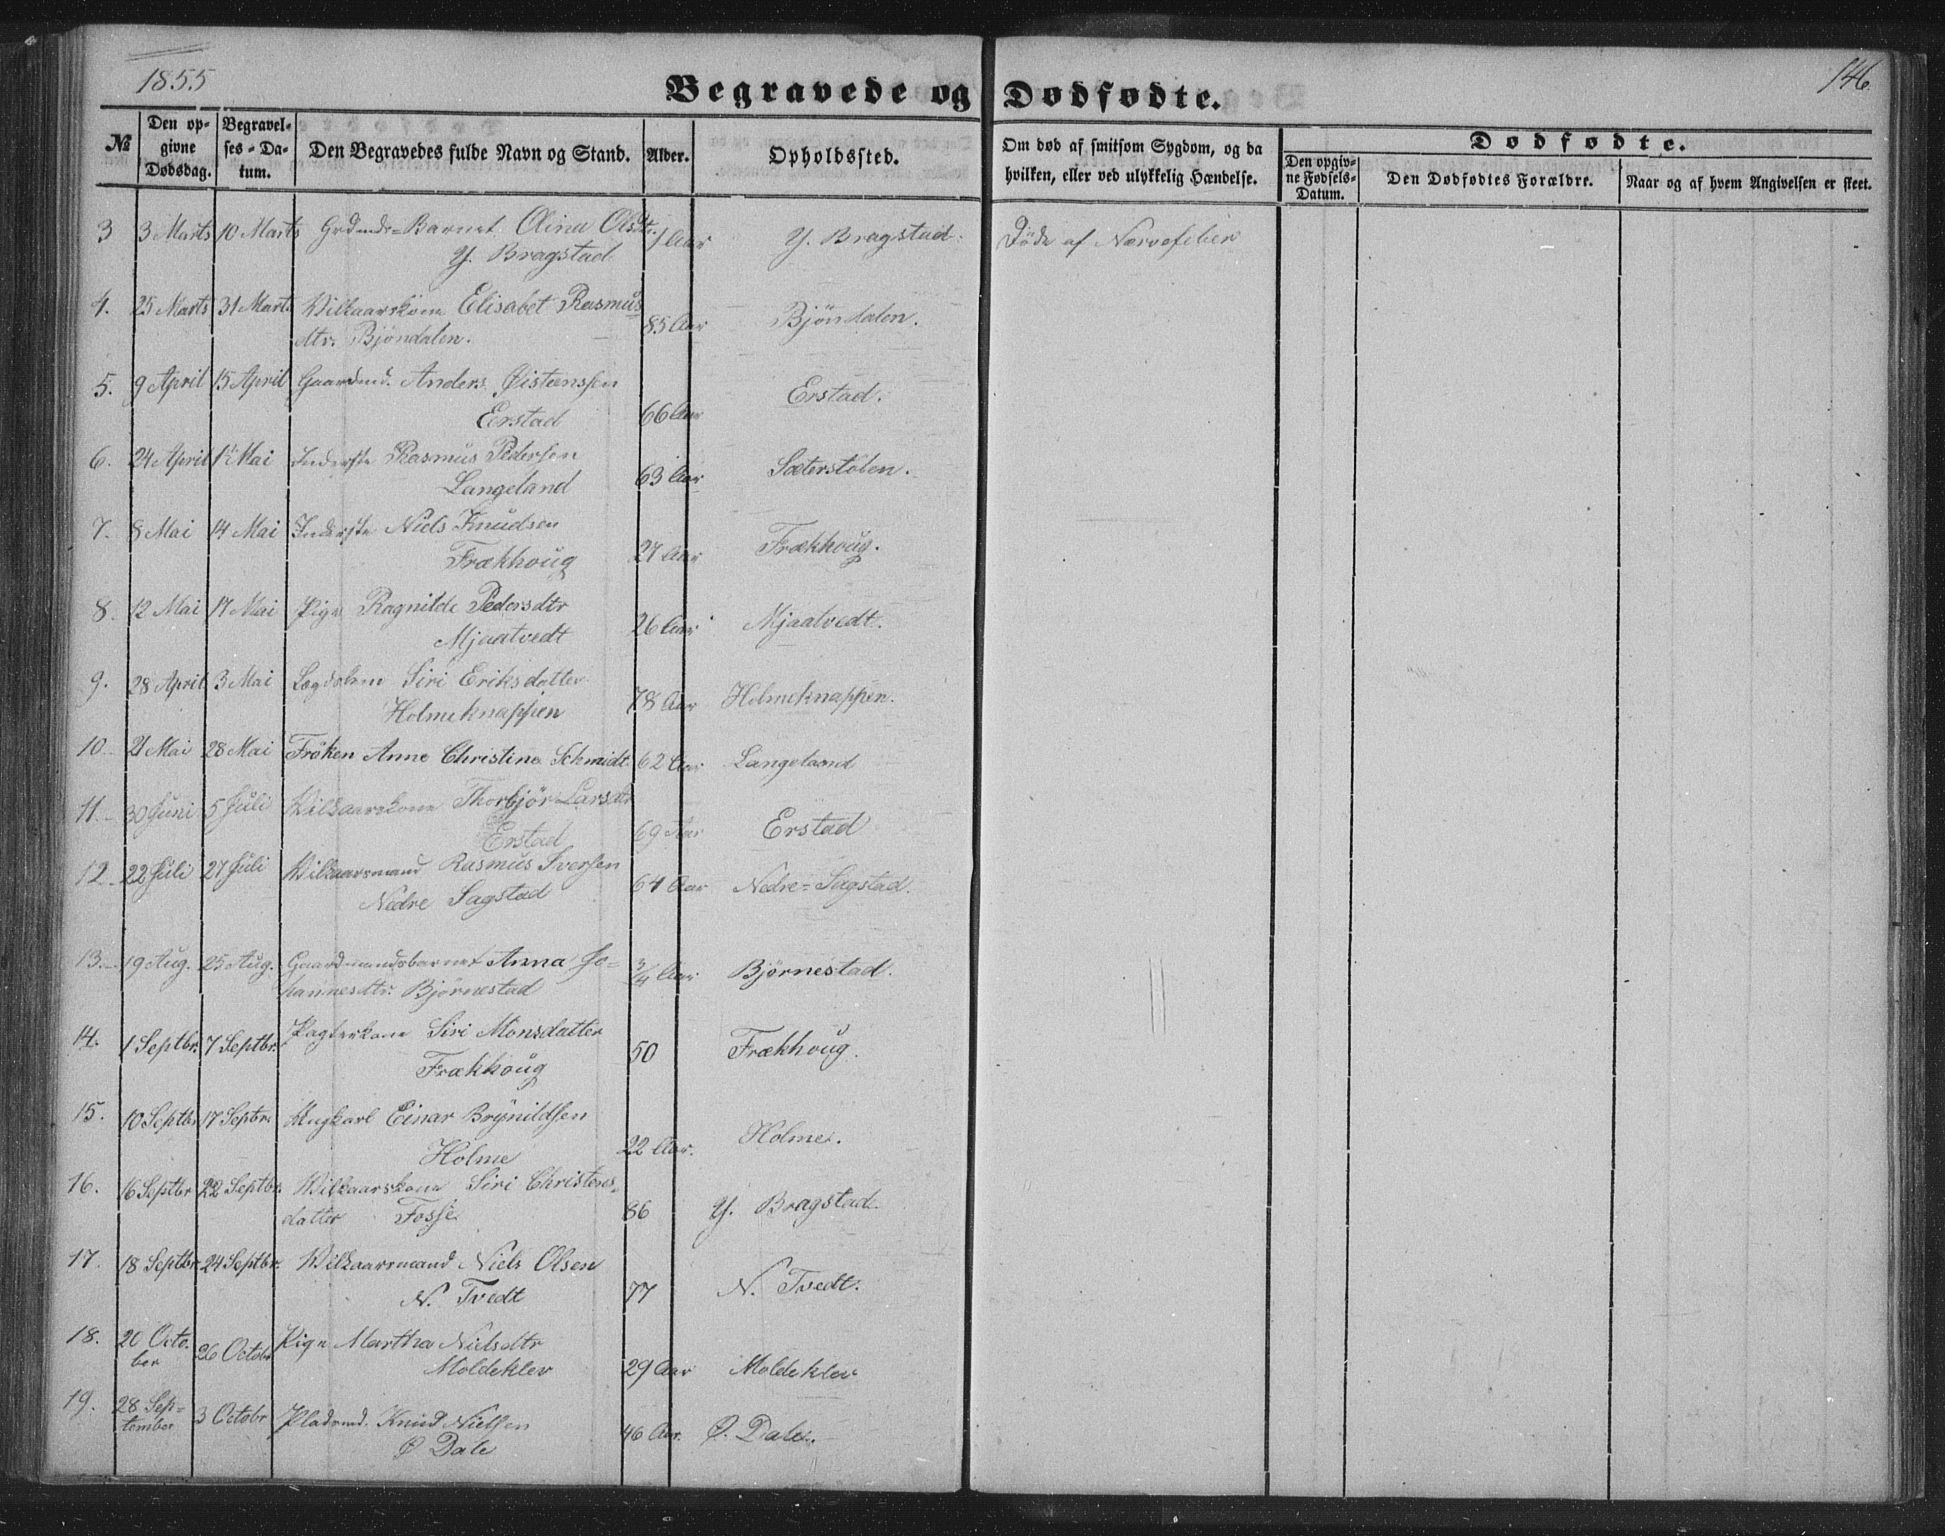 1855
146
Begravede og Dødfødte.
№
Den op-
givne
Dødsdag.
Begravel-
ses-Da-
tum.
Den Begravedes fulde Navn og Stand.
Alder.
Opholdssted.
Om død af smitsom Sygdom, og da
hvilken, eller ved ulykkelig Hændelse.
Dødfødte.
Den opgiv-
ne Fødsels-
Datum.
Den Dødfødtes Forældre.
Naar og af hvem Angivelsen er skeet.
3 3 Marts 10 Marts Grdmds-Barnet Olina Olsdtr. 1 Aar Y. Bragstad. Døde af Nervefeber
Y. Bragstad
4. 25 Marts 31 Marts Vilkaarskone Elisabet Rasmus 85 Aar Bjöndalen.
dtr. Bjöndalen.
5. 9 April 15 April Gaardmd. Anders Øistensen 66 Aar Erstad.
Erstad
6. 24 April 1 Mai Inderste Rasmus Pedersen 63 Aar Sæterstölen.
Langeland
7. 8 Mai 14 Mai Inderste Niels Knudsen 27 Aar Frækhoug.
Frækhoug
8. 12 Mai 17 Mai Pige Ragnilde Pedersdtr 26 Aar Mjaatvedt.
Mjaatvedt
9. 28 April 3 Mai Lægdslem Siri Eriksdatter 78 Aar Holmeknappen.
Holmeknappen
10 21 Mai 28 Mai Fröken Anne Christine Schmidt 62 Aar Langeland
11. 30 Juni 5 Juli Vilkaarskone Thorbjör Larsdtr 69 Aar Erstad
Erstad
12. 22 Juli 27 Juli Vilkaarsmand Rasmus Iversen 64 Aar Nedre-Sagstad.
Nedre Sagstad
13. 19 Aug. 25 Aug. Gaardmandsbarnet Anna Jo- 3/4 Aar Björnestad.
hannesdtr. Björnestad
14. 1 Septbr. 7 Septbr. Pagterkone Siri Monsdatter 50 Frækhoug.
Frækhoug
15. 10 Septbr 17 Septbr. Ungkarl Einar Brynildsen 22 Aar. Holme.
Holme
16. 16 Septbr 22 Septbr. Vilkaarskone Siri Christens- 86 Y. Bragstad.
datter Fosse
17. 18 Septbr. 24 Septbr. Vilkaarsmand Niels Olsen 77 N. Tvedt.
N. Tvedt
18. 20 Octo- 26 Octobr Pige Martha Nielsdtr 29 Aar Moldeklev
ber Moldeklev
19. 28 Sep- 3 Octobr Pladsmd. Knud Nielsen 46 Aar. Ø. Dale.
tember Ø Dale